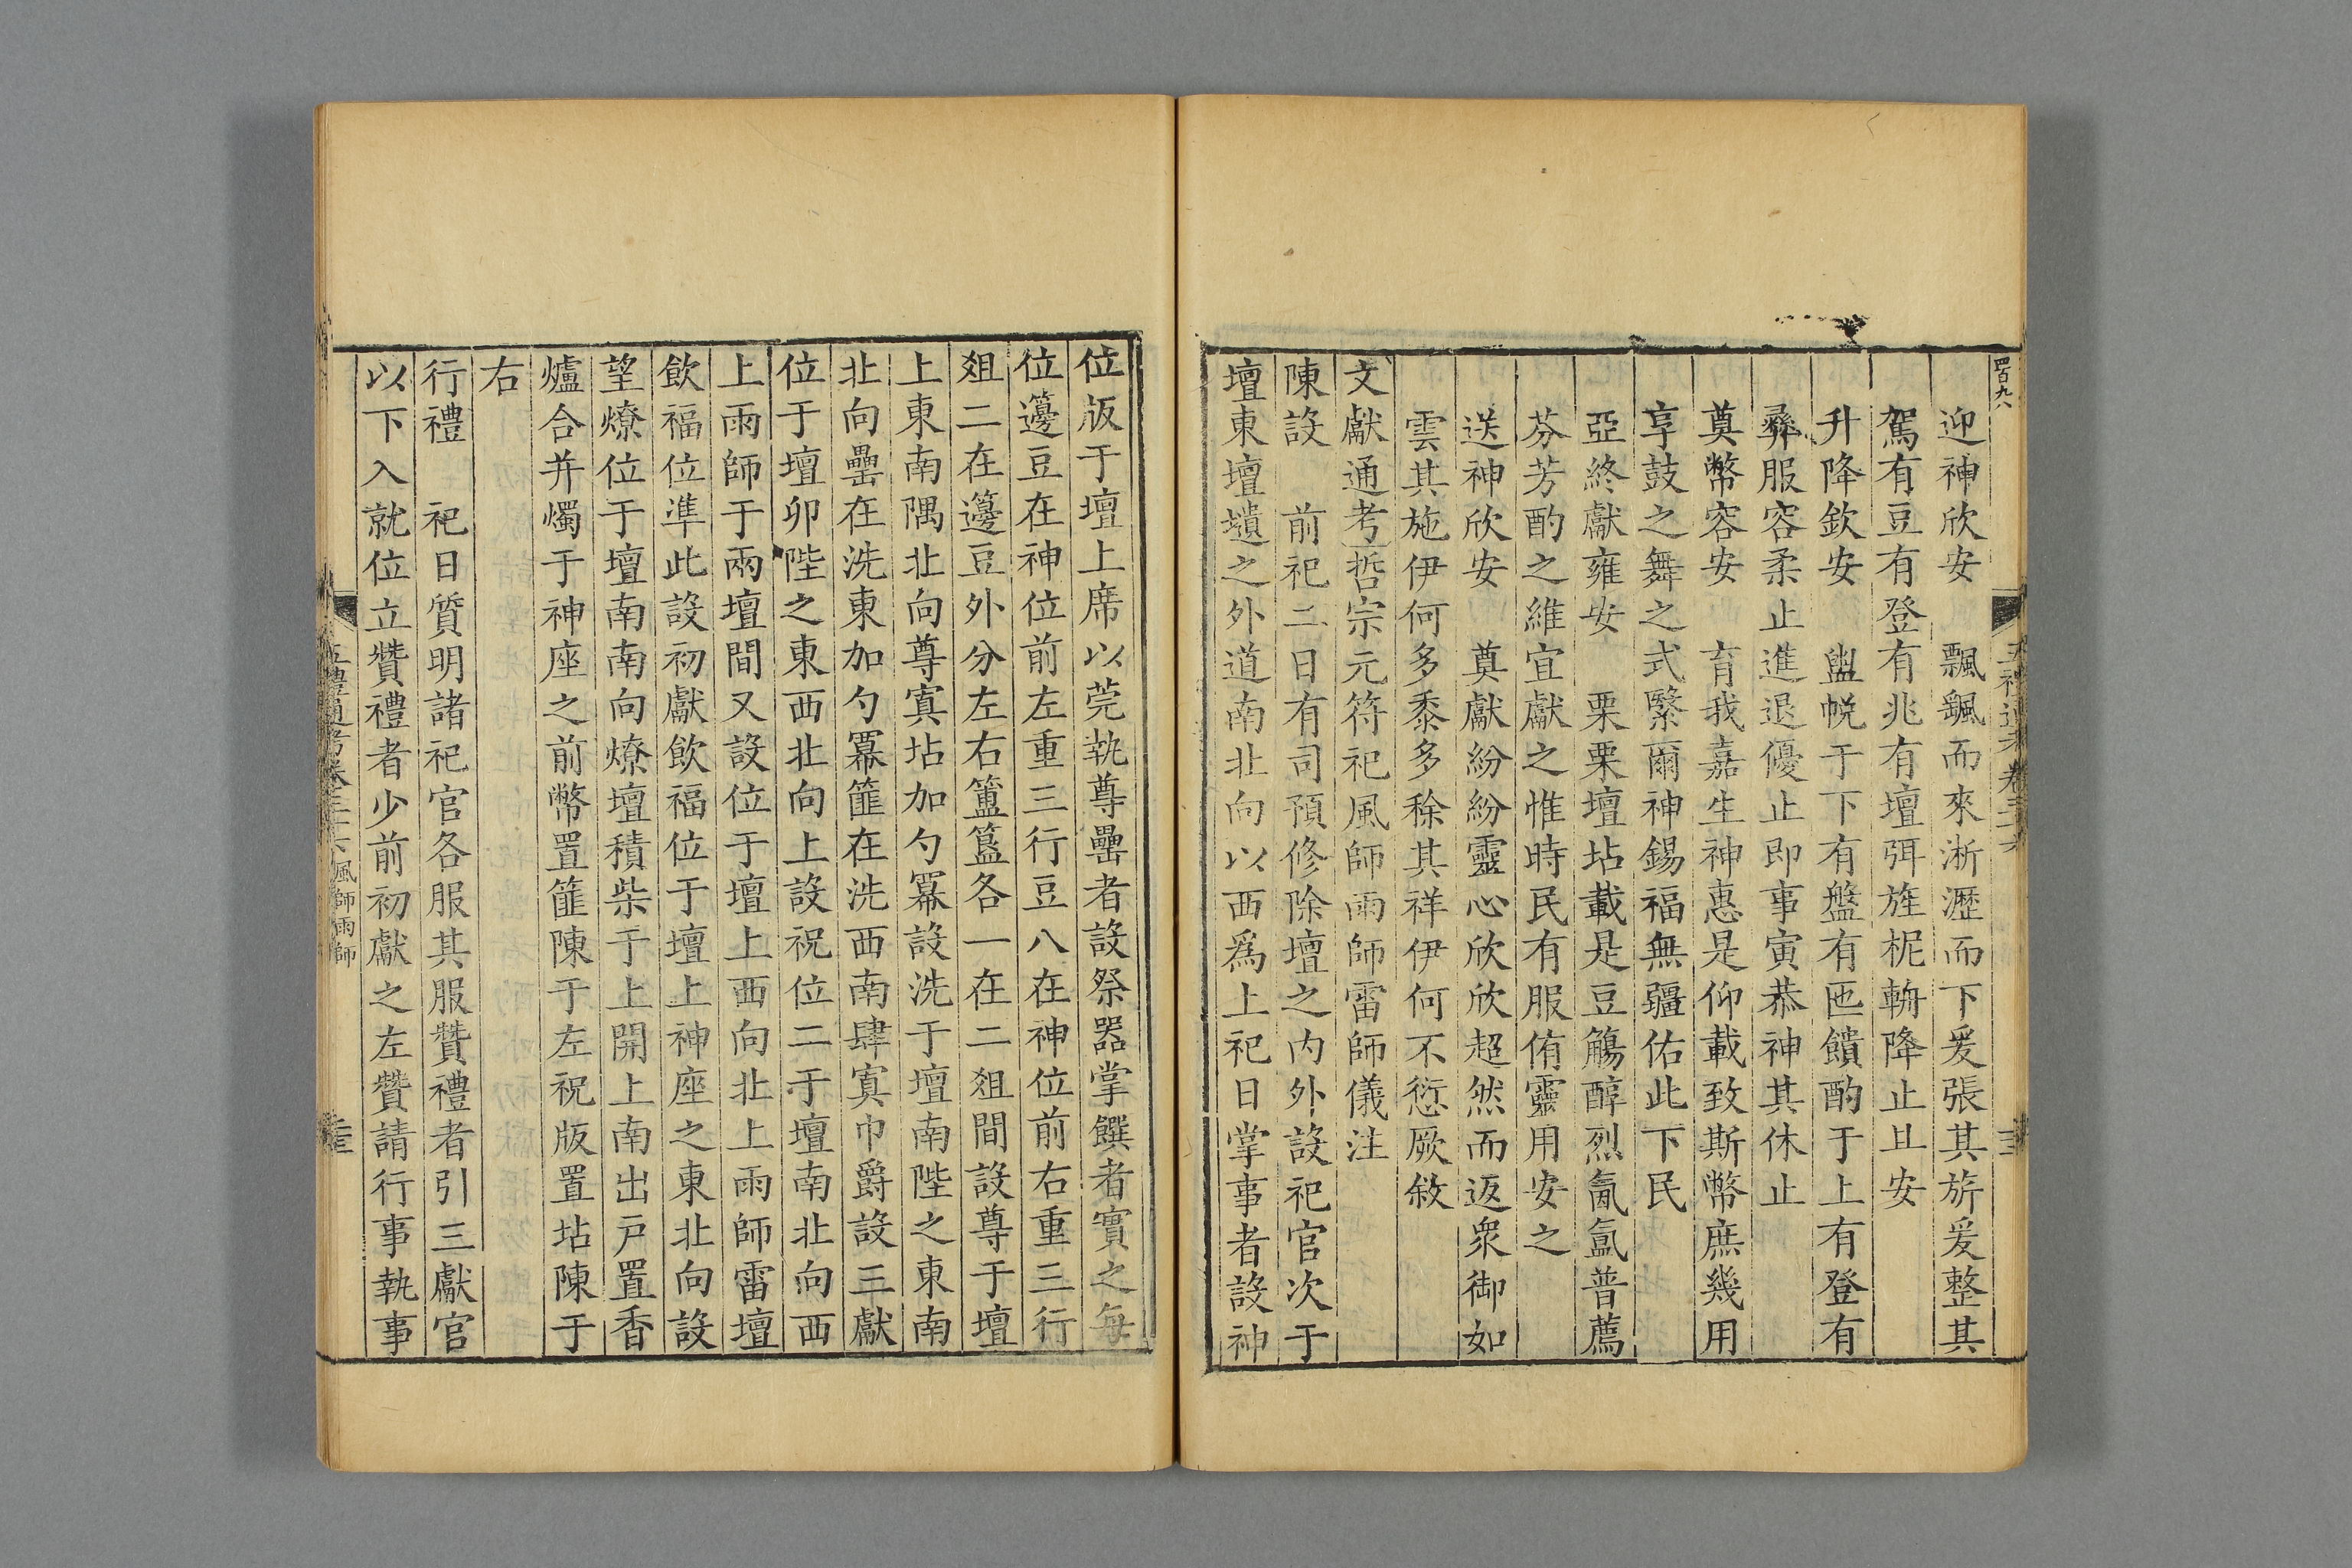 四百九八
迎神欣安　飄颻而來淅瀝而下爰張其旂爰整其
駕有豆有登有兆有壇弭旌柅輈降止且安
升降欽安　盥帨于下有盤有匜饋酌于上有登有
彝服容柔止進退優止即事寅恭神其休止
奠幣容安　育我嘉生神惠是仰載致斯幣庶幾用
享鼓之舞之式緊爾神錫福無疆佑此下民
亞終獻雍安　栗栗壇坫載是豆觴醇烈氤氳普薦
芬芳酌之維宜獻之惟時民有服侑靈用安之
送神欣安　奠獻紛紛靈心欣欣超然而返衆御如
雲其施伊何多黍多稌其祥伊何不愆厥敘
文獻通考哲宗元符祀風師雨師雷師儀注
陳設　前祀二日有司預修除壇之内外設祀官次于
壇東壇壝之外道南北向以西爲上祀日掌事者設神
位版于壇上席以莞執尊罍者設祭器掌饌者實之每
位籩豆在神位前左重三行豆八在神位前右重三行
俎二在籩豆外分左右簠簋各一在二俎間設尊于壇
上東南隅北向尊寘坫加勺冪設洗于壇南陛之東南
北向罍在洗東加勺冪篚在洗西南肆寘巾爵設三獻
位于壇卯陛之東西北向上設祝位二于壇南北向西
上雨師于兩壇間又設位于壇上西向北上雨師雷壇
飲福位準此設初獻飲福位于壇上神座之東北向設
望燎位于壇南南向燎壇積柴于上開上南出戸置香
爐合并燭于神座之前幣置篚陳于左祝版置坫陳于
右
行禮　祀日質明諸祀官各服其服贊禮者引三獻官
以下入就位立贊禮者少前初獻之左贊請行事執事
五禮通考卷三十六風師雨師